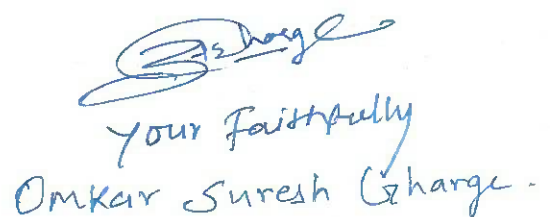 Your Faithfully
Omkar Suresh Gharge.